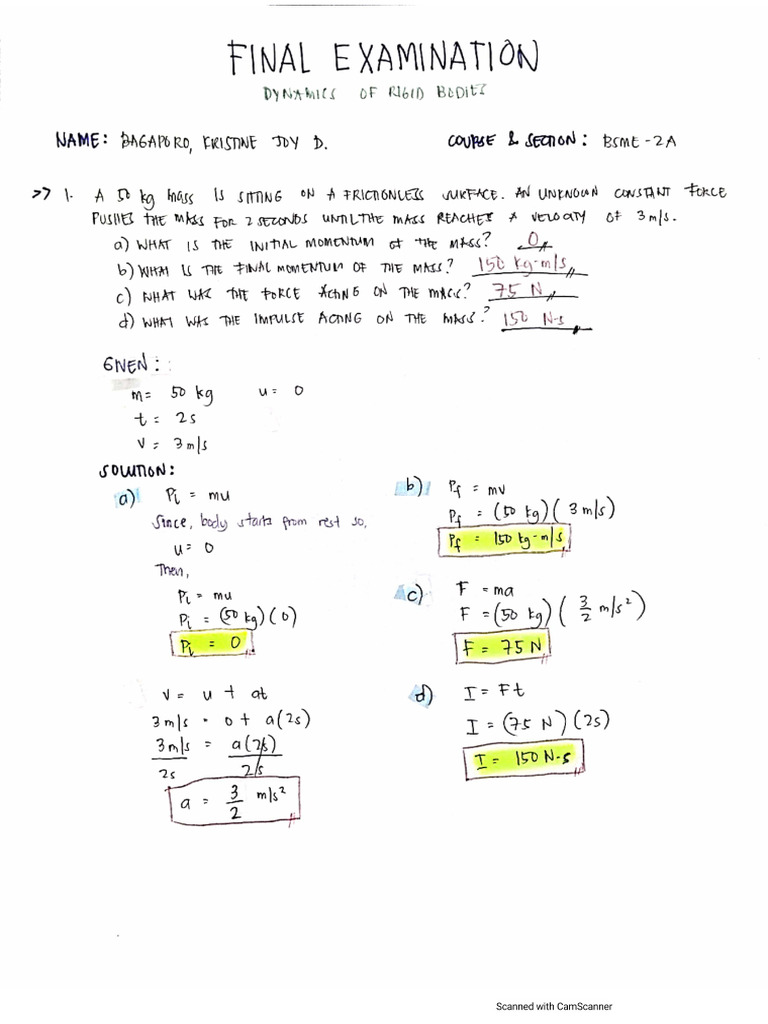 FINAL EXAMINATION
DYNAMICS OF RIGID BODIES
NAME: BAGAPORO, KRISTINE JOY D. COURSE & SECTION: BSME - 2A
>> 1. A 50 kg MASS IS SITTING ON A FRICTIONLESS SURFACE. AN UNKNOWN CONSTANT FORCE
PUSHES THE MASS FOR 2 SECONDS UNTIL THE MASS REACHES A VELOCITY OF 3 m/s.
a) WHAT IS THE INITIAL MOMENTUM OF THE MASS? 0
b) WHAT IS THE FINAL MOMENTUM OF THE MASS? 150 kg-m/s
c) WHAT WAS THE FORCE ACTING ON THE MASS? 75 N
d) WHAT WAS THE IMPULSE ACTING ON THE MASS? 150 N-s
GIVEN:
m= 50 kg u= 0
t= 2s
v= 3 m/s
SOLUTION:
a) Pi = mu
Since, body starts from rest so,
u= 0
Then,
Pi = mu
Pi = (50 kg)(0)
Pi = 0
v= u + at
3 m/s = 0 + a(2s)
3 m/s = a(2s)
2s 2s
a = 3/2 m/s²
b) Pf = mv
Pf = (50 kg)(3 m/s)
Pf = 150 kg-m/s
c) F = ma
F = (50 kg)(3/2 m/s²)
F = 75 N
d) I = Ft
I = (75 N)(2s)
I = 150 N-s
Scanned with CamScanner